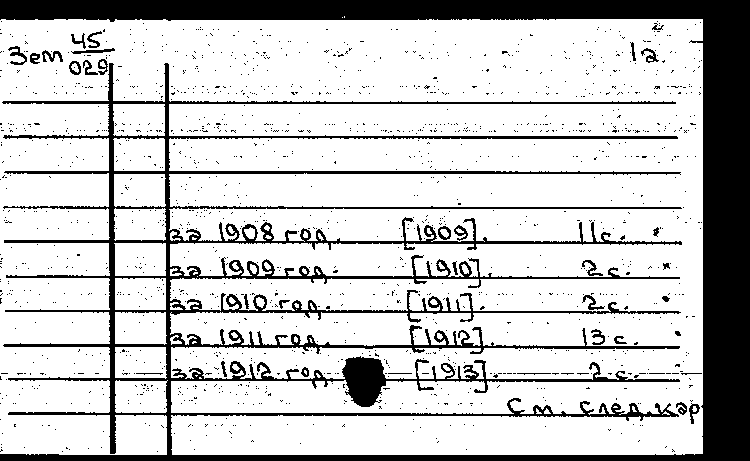 Зем 45/029 1а.
за 1908 год. [1909]. 11с. *
за 1909 год. [1910]. 2с. *
за 1910 год. [1911]. 2с. *
за 1911 год. [1912]. 13с. *
за 1912 год. [1913]. 2с.
См. след. кар